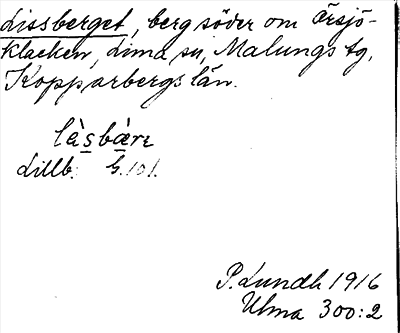 Lissberget, berg söder om Örsjö-
klacken, Lima sn, Malungs tg,
Kopparbergs län.
làsbærɛ
Lillb. G. 101.
P. Lundh 1916
Ulma 300:2